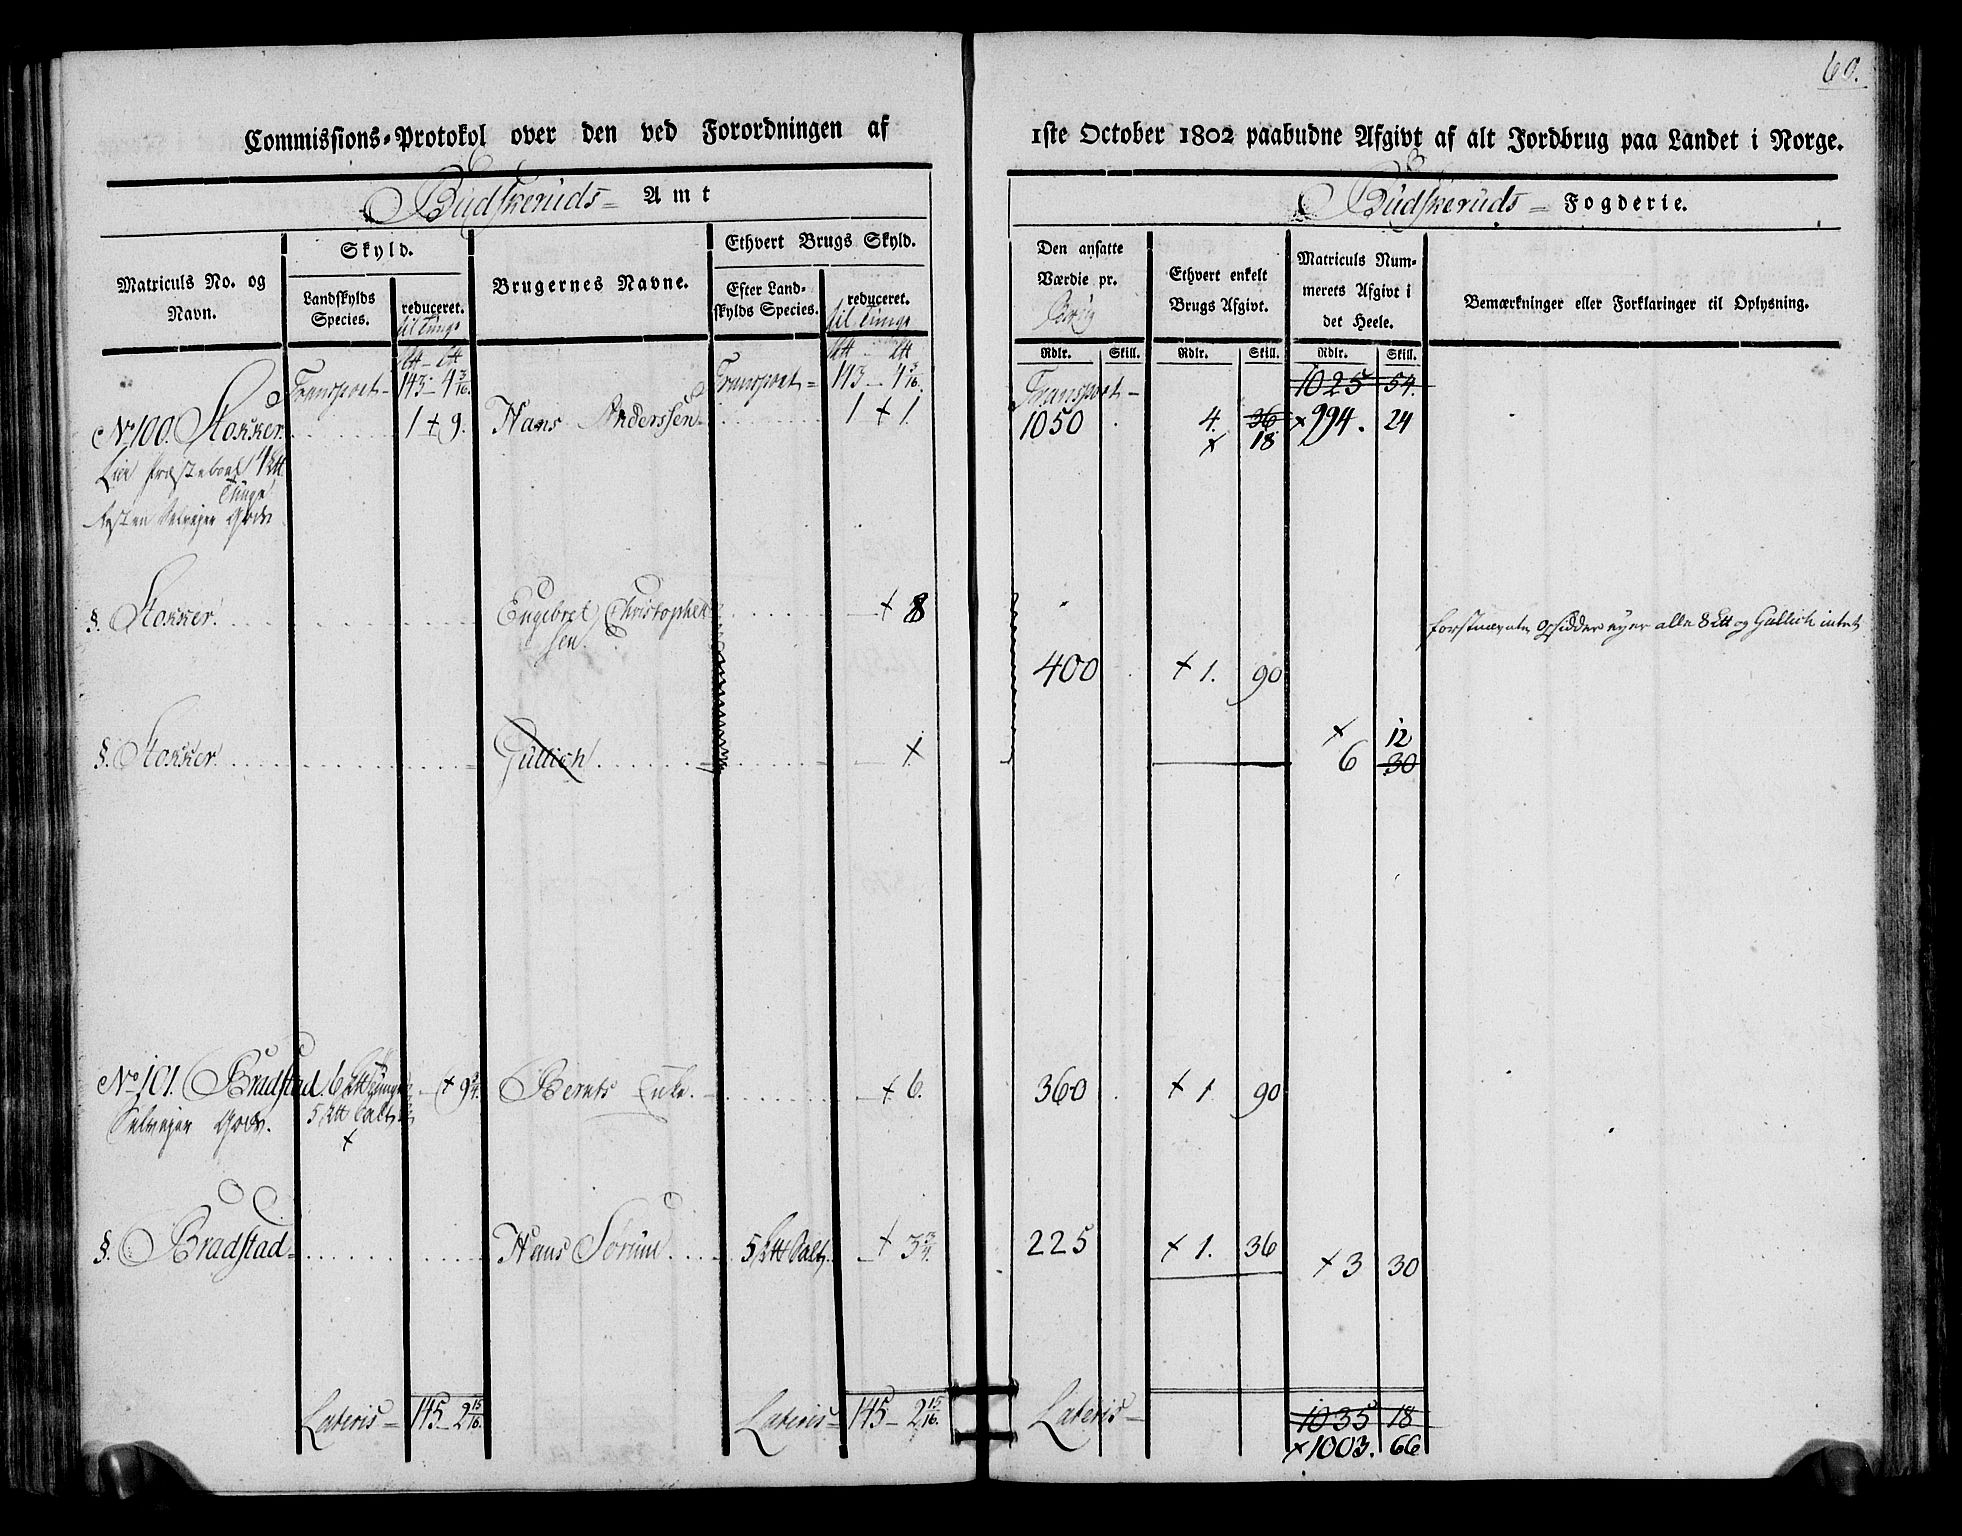 60.
Commissions-Protokol over den ved Forordningen af
1ste October 1802 paabudne Afgivt af alt Jordbrug paa Landet i Norge.
Budskeruds- Amt
Budskeruds- Fogderie.
Matriculs No. og Navn.
Skyld.
Landskylds Species.
reduceret.
til Tunge
Brugernes Navne.
Ethvert Brugs Skyld.
Efter Land-skylds Species.
reduceret.
til Tunge
Den ansatte Værdie pr.
Ethvert enkelt Brugs Afgivt.
Matriculs Num-merets Afgivt i det Heele.
Bemærkninger eller Forklaringer til Oplysning.
Rdlr. Skill. Rdlr. Skill. Rdlr. Skill.
Transport- 143- 4 3/16. Transport- 143- 4 3/16. Transport- 1025 54.
No 100. Stokker. 1 + 9. Hans Anderssen. 1 + 1. 1050 4. 36 × 994. 24
× 18
Lier Præsteboel 4
Tunge
Resten Selveier Gods
§. Stokker. Engebret Christophersen. + 8 400 + 1. 90 forstnævnte Opsidder eyer alle 8 og Gullich intet
§. Stokker. Gullich + × 12
6 30
No 101. Bradstad. 6 Tunge + 9¾. Berets Enke. + 6. 360 + 1 90
Selveier Gods. 5 Salt
+
§. Bradstad Hans Sørum 5 Salt + 3¾. 225 + 1. 36 + 3 30
Lateris- 145- 2 15/16. Lateris- 145- 2 15/16. Lateris- 1035 18
× 1003. 66